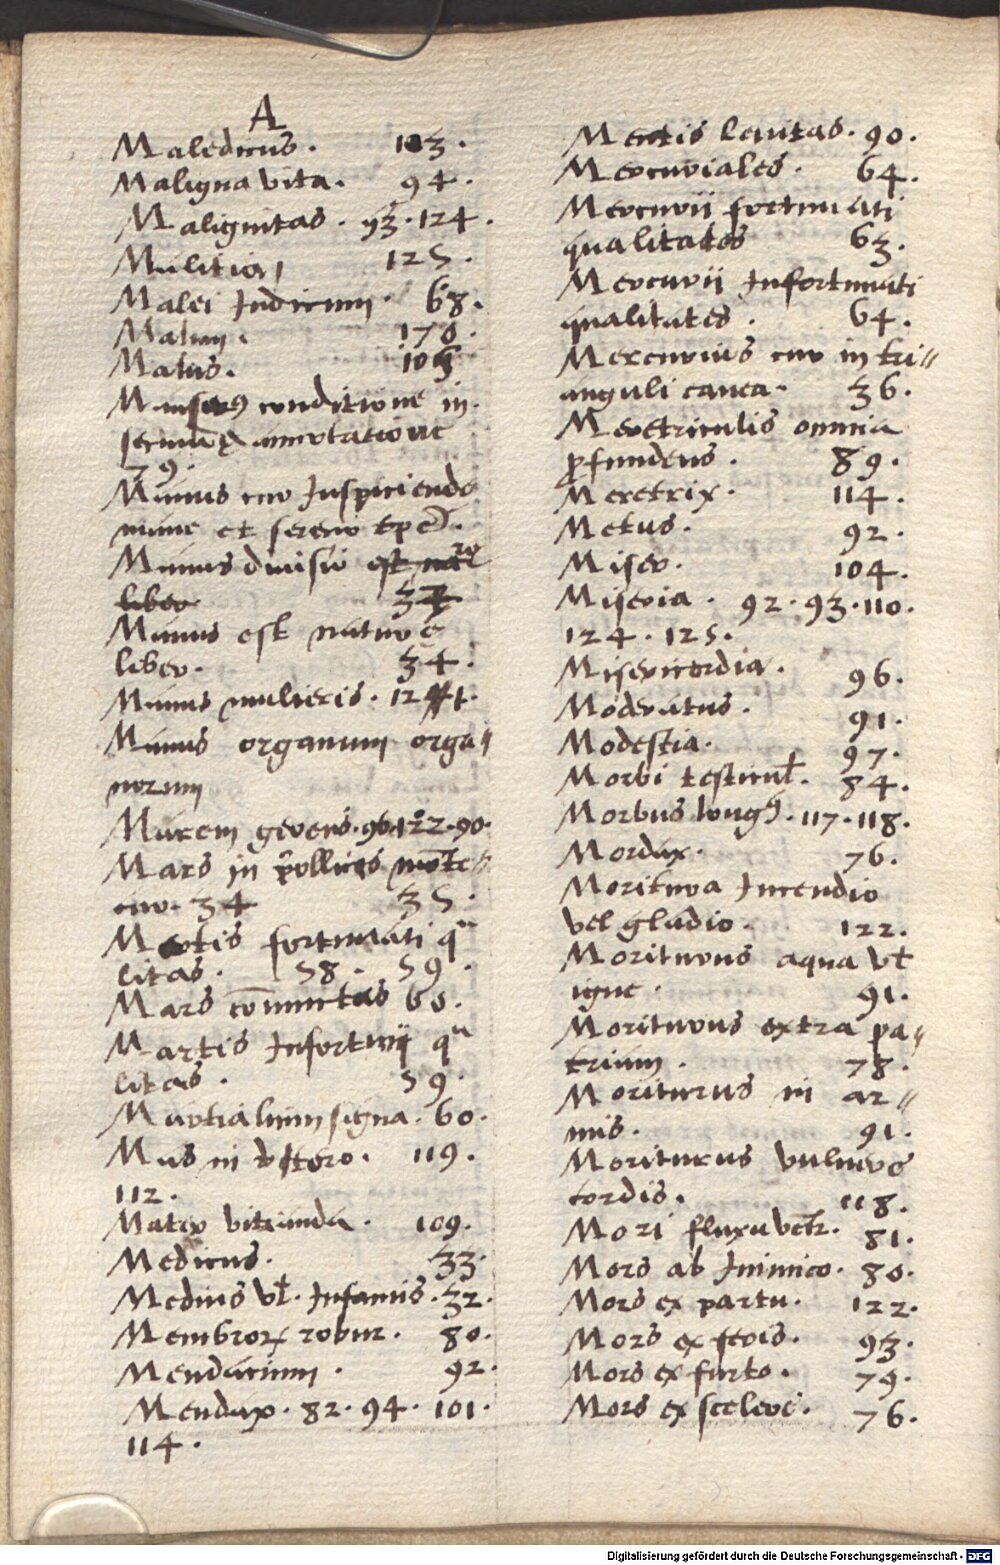 A
Maledicus. 103.
Maligna vita. 94.
Malignitas. 93. 124.
Malitia 125.
Malei Iudicium. 68.
Malum. 170.
Malus. 105
conditione in
annotatione
79.
Manus cur Inspiciende
mane et sereno tpe).
Manus diuisio est
liber 34
Manus est nature
liber. 34.
Manus mulieris. 124.
Manus organum orga〃
norum
Marem generans. 96. 122. 90.
Mars in pollices monte〃
cur. 34 35.
Martis fortunati qa
litas. 58. 59.
Mars 60.
Martis Infortunij qa
litas. 59.
Martialium signa. 60.
Mas in vtero. 119.
112.
Mater vitanda. 109.
Medicus. 33.
Medius Vl. Infamis. 32.
Membror robur. 80.
Mendacium. 92.
Mendax. 82. 94. 101.
114.
Mentis leuitas. 90.
Mercuriales. 64.
Mercurii fortunati
qualitates 63.
Mercurii Infortunati
qualitates. 64.
Mercurius cur in tri〃
anguli cauea. 36.
Meretriculis omnia
pfundens. 89.
Meretrix. 114.
Metus. 92.
Miser. 104.
Miseria. 92. 93. 110.
124. 125.
Misericordia. 96.
Moderatus. 91.
Modestia. 97.
Morbi testicul. 84.
Morbus long9. 117. 118.
Mordax. 76.
Moritura Incendio
vel gladio. 122.
Moriturus aqua Vl
igne. 91.
Moriturus extra pa〃
triam. 78.
Moriturus in ar〃
mis. 91.
Moriturus vulnere
cordis. 118.
Mori fluxu ventr. 81.
Mors ab Inimico. 80.
Mors ex partu. 122.
Mors ex feris. 93.
Mors ex furto. 79.
Mors ex scelere. 76.
Digitalisierung gefördert durch die Deutsche Forschungsgemeinschaft - DFG